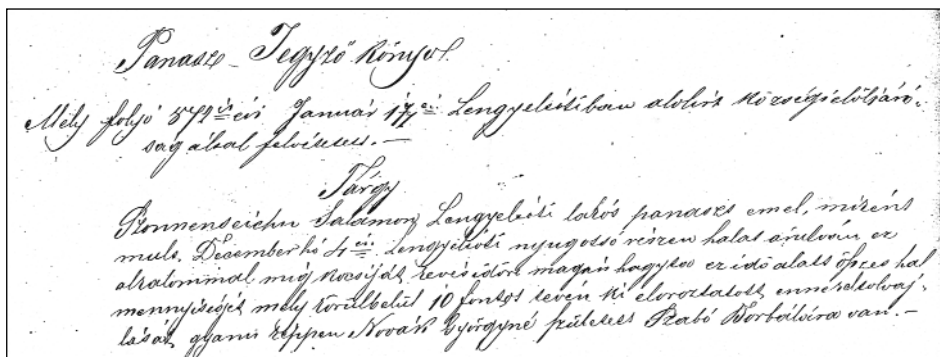 Panasz - Jegyző könyv.
Mely folyó 872ik évi Január 17én Lengyeltótiban alolirt községi előljáró-
ság által felvétetett. -
Tárgy
Salamon Lengyeltóti lakós panaszt emel, miként
mult. December hó 4én Lengyeltóti nyugotsó részen halat árulván, ez
alkalommal mig kocsiját kevés időre magán hagyta ez idő alatt öszes hal
mennyiségét mely körülbelül 10 fontot tevén ki eloroztatott, ennek eltolvaj-
lását, gyanu képpen Novák Györgyné született Szabó Borbálára van. -